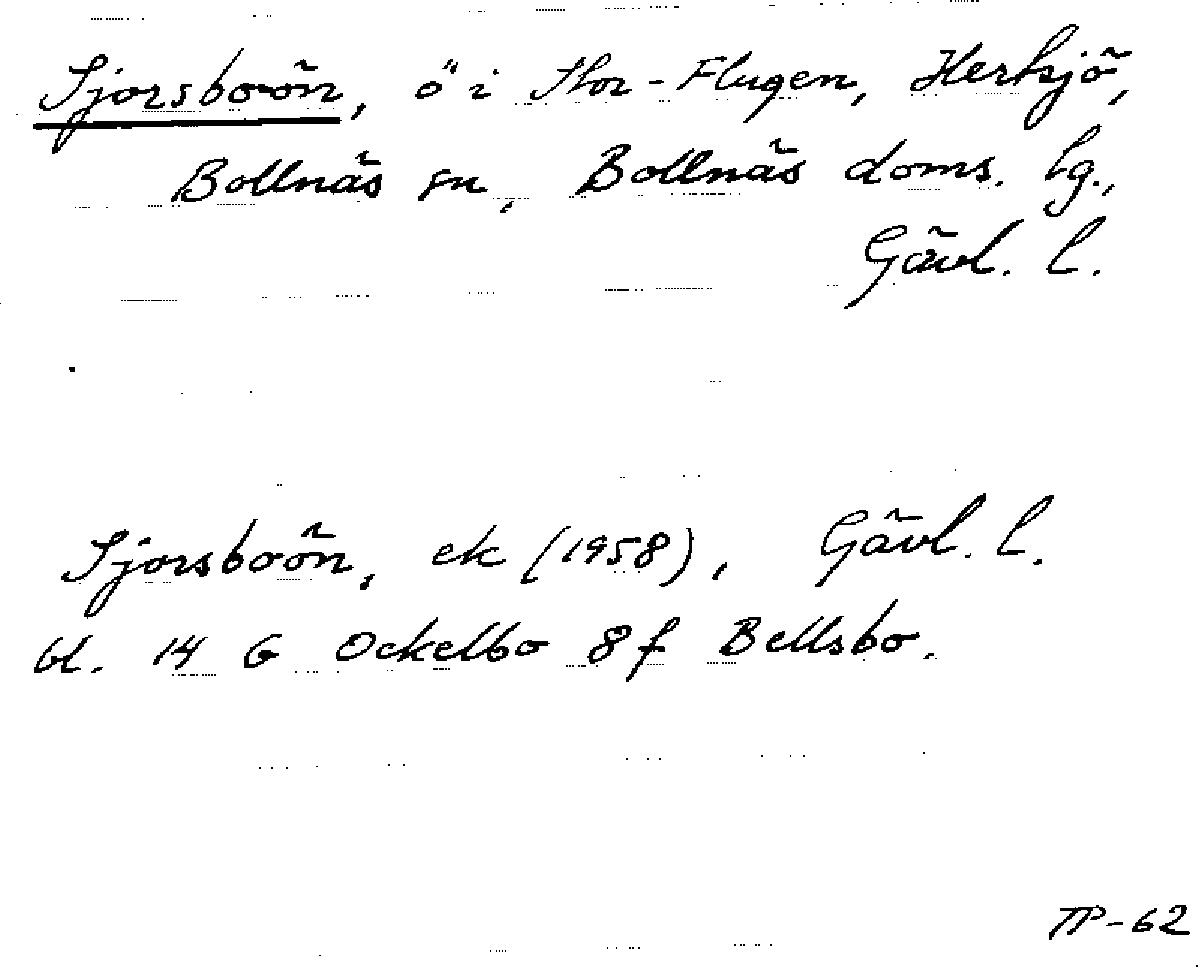 Sjorsboön, ö i Stor-Flugen, Herksjö,
Bollnäs sn, Bollnäs doms. lg.,
Gävl. l.
Sjorsboön, ek (1958), Gävl. l.
bl. 14 G Ockelbo 8 f Bellsbo.
TP-62